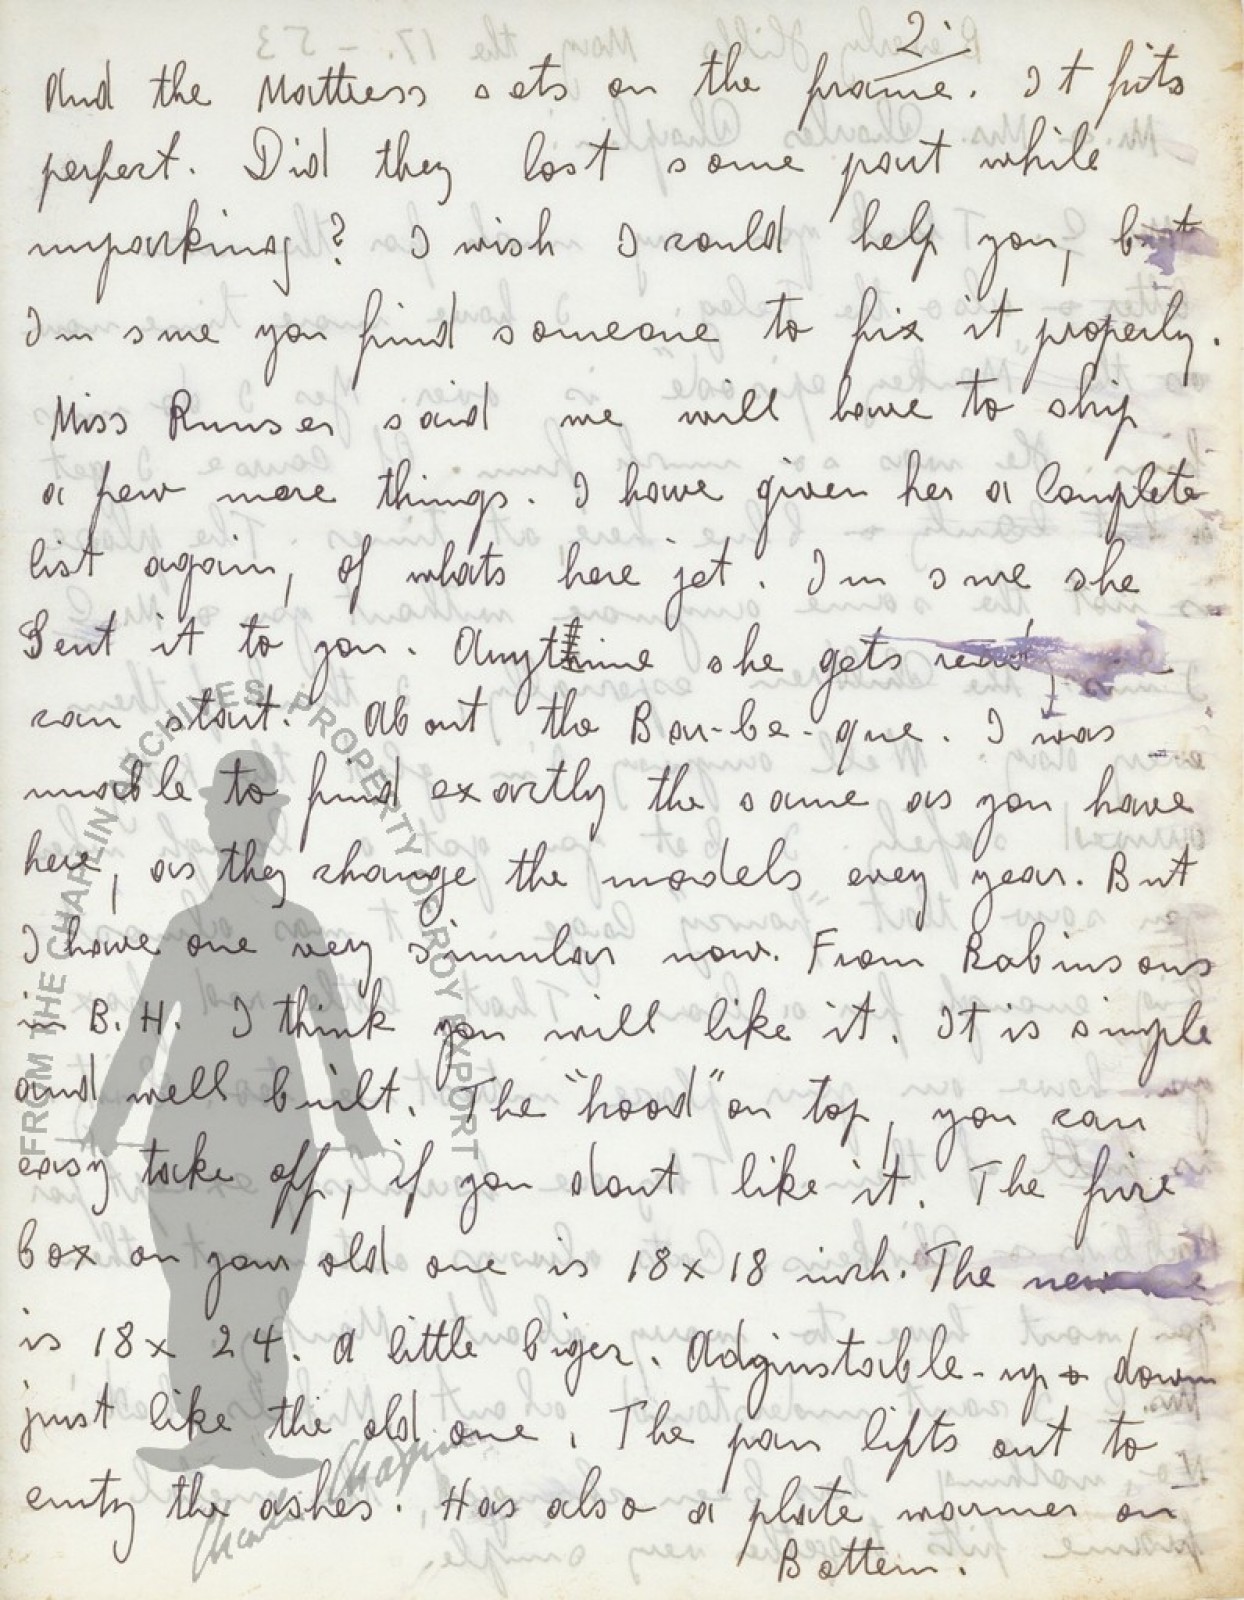 2.
And the Mattress sets on the frame. It fits
perfect. Did they lost some part while
unpacking? I wish I could help you, but
I'm sure you find someone to fix it properly.
Miss Runser said we will have to ship
a few more things. I have given her a Complete
list again, of whats here jet. I'm sure she
Sent it to you. Anytime she gets
can start. About the Bar-be-que. I was
unable to find exactly the same as you have
here, as they change the models every year. But
I have one very simular now. From Robinsons
in B.H. I think you will like it. It is simple
and well built. The "hood" on top, you can
easy take off, if you dont like it. The fire
box on your old one is 18x18 inch. The new one
is 18x24. A little biger. Adjustable-up & down
just like the old one. The pan lifts out to
emty the ashes. Has also a plate warmer on
Bottem.
FROM THE CHAPLIN ARCHIVES PROPERTY OF ROY EXPORT
Charles Chaplin